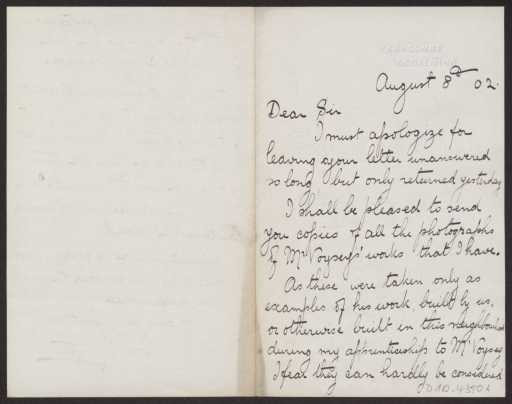 August 8th 02.
Dear Sir
I must apologize for
leaving your letter unanswered
so long but only returned yesterday
I shall be pleased to send
you copies of all the photographs
of Mr Voysey's works that I have.
As these were taken only as
examples of his work, built by us,
or otherwise built in this neighbourhood
during my apprenticeship to Mr Voysey
I fear they can hardly be considered